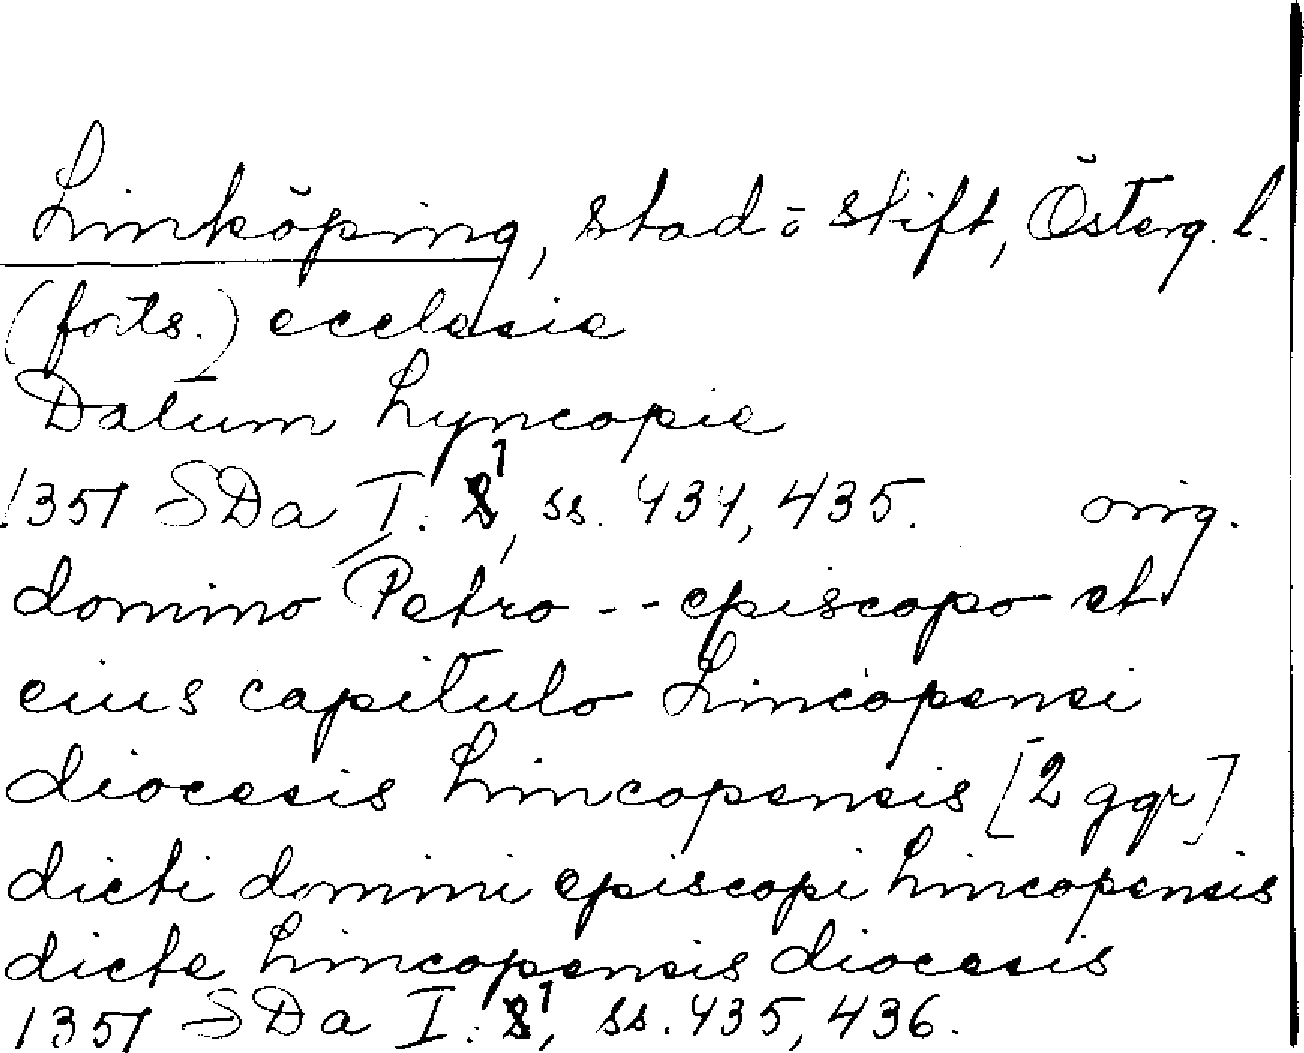 Linköping, stad o stift, Österg. l.
(forts.) ecclesie
Datum Lyncopie
1351 SDa I. 1, ss. 434, 435. orig.
domino Petro -- episcopo et
eius capitulo Lincopensi
diocesis Lincopensis [2 ggr]
dicti domini episcopi Lincopensis
dicte Lincopensis diocesis
1351 SDa I. 1, ss. 435, 436.